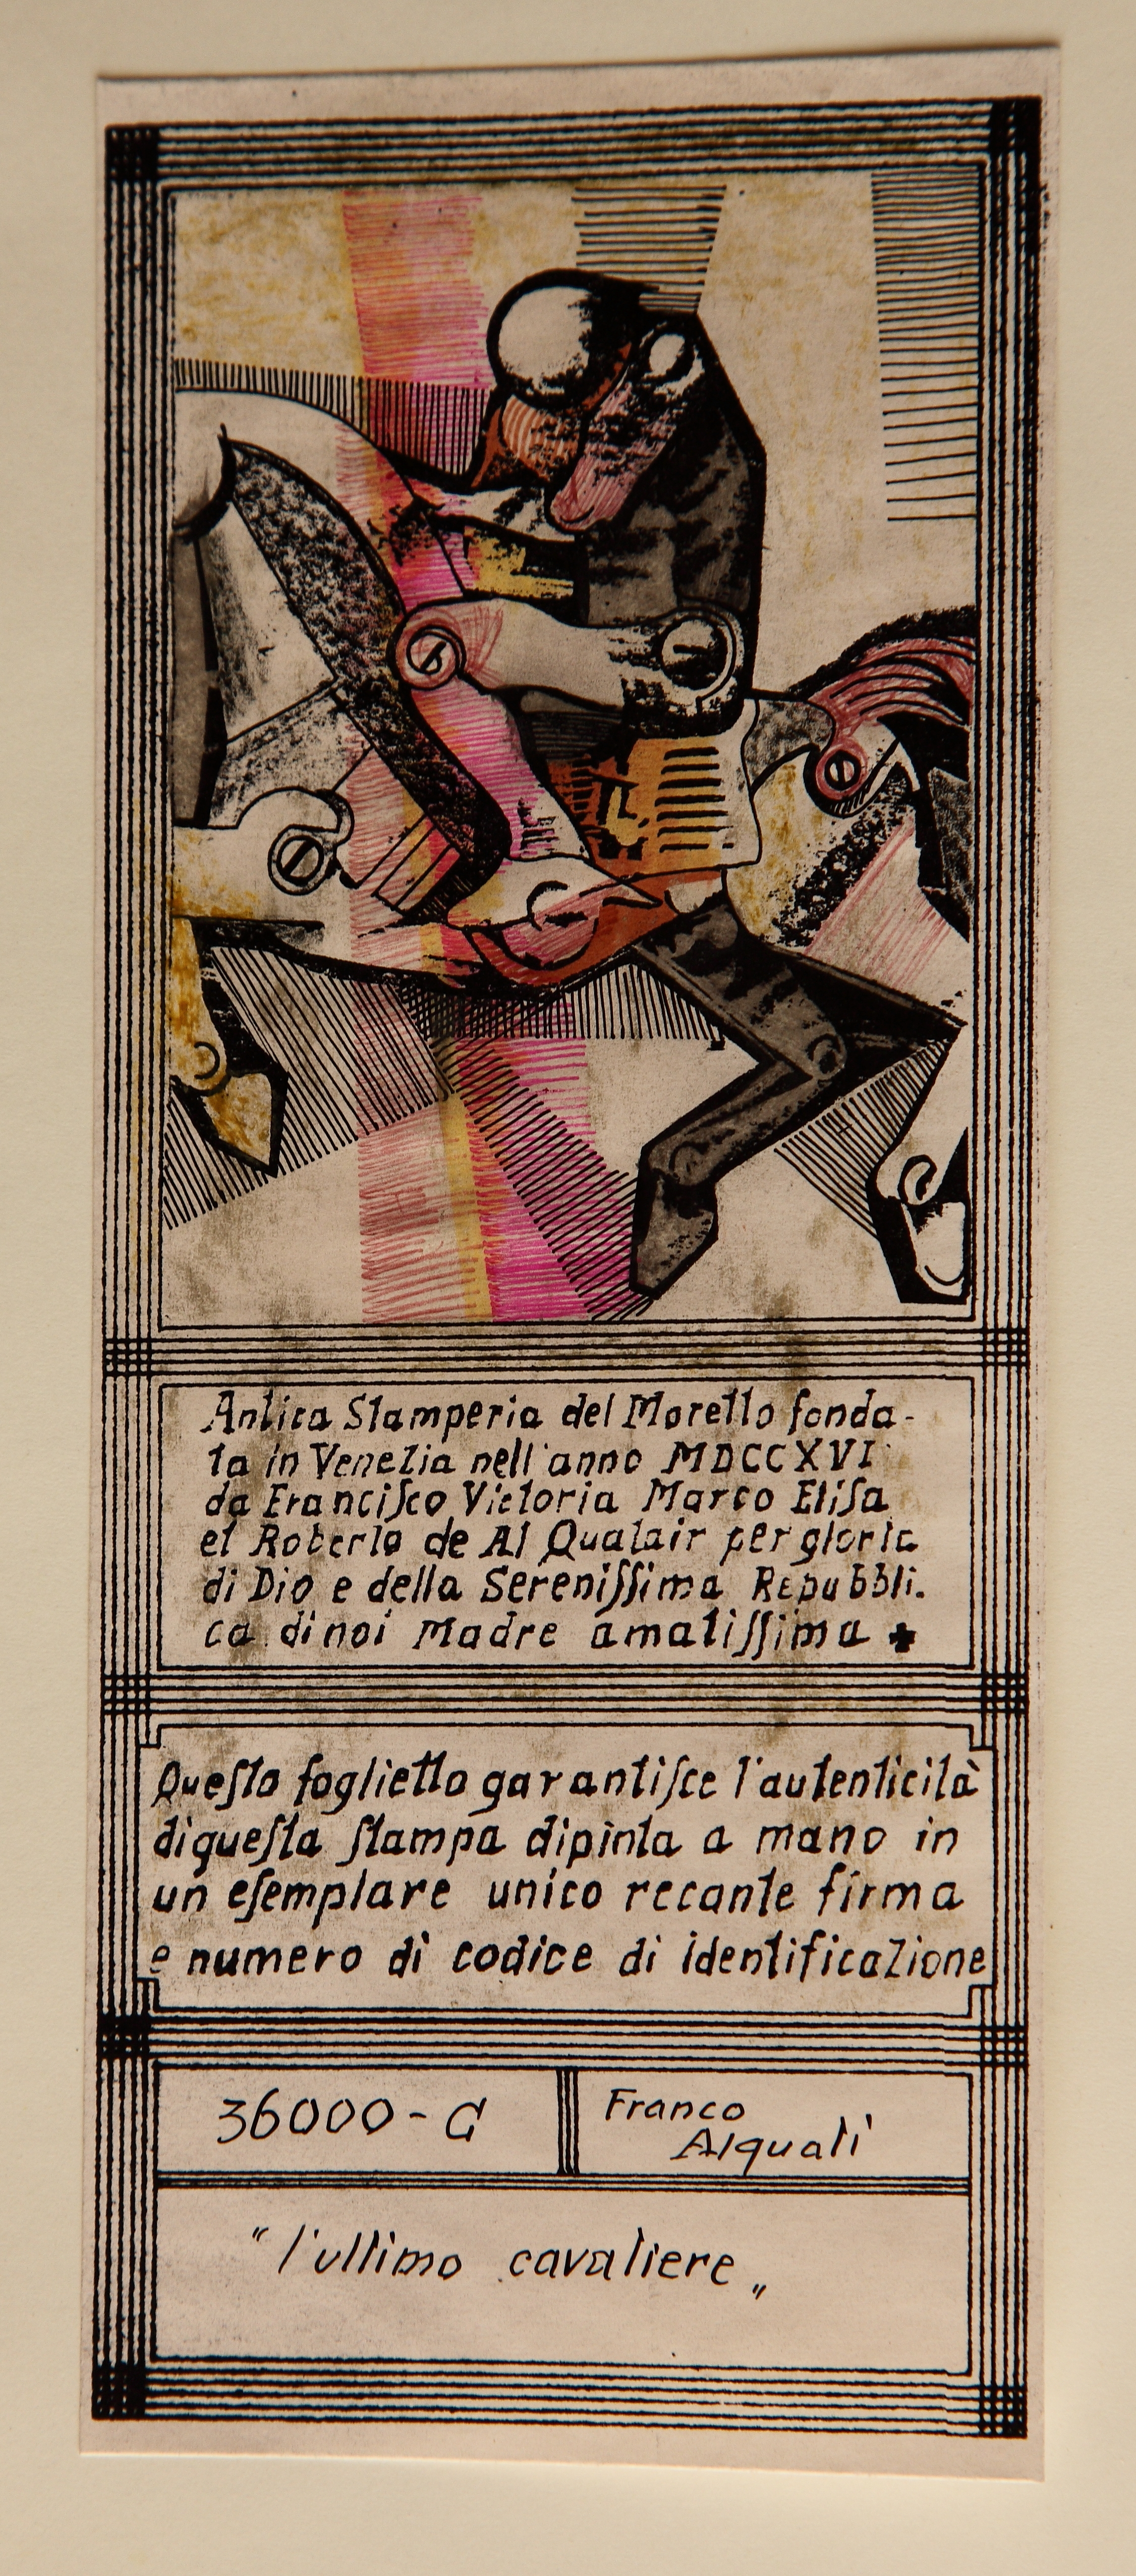 Antica Stamperia del Moretto fonda-
ta in Venezia nell'anno MDCCXVI
da Franciſco Victoria Marco Eliſa
et Roberto de Al Qualair per gloria
di Dio e della Sereniſſima Repubbli-
ca di noi Madre amatiſſima ✚
Queſto foglietto garantiſce l'autenticità
di queſta ſtampa dipinta a mano in
un eſemplare unico recante firma
e numero di codice di identificazione
36000-G
Franco
Alquati
"l'ultimo cavaliere„